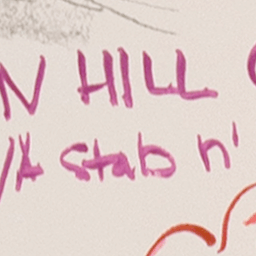 N HILL
A Stab n'